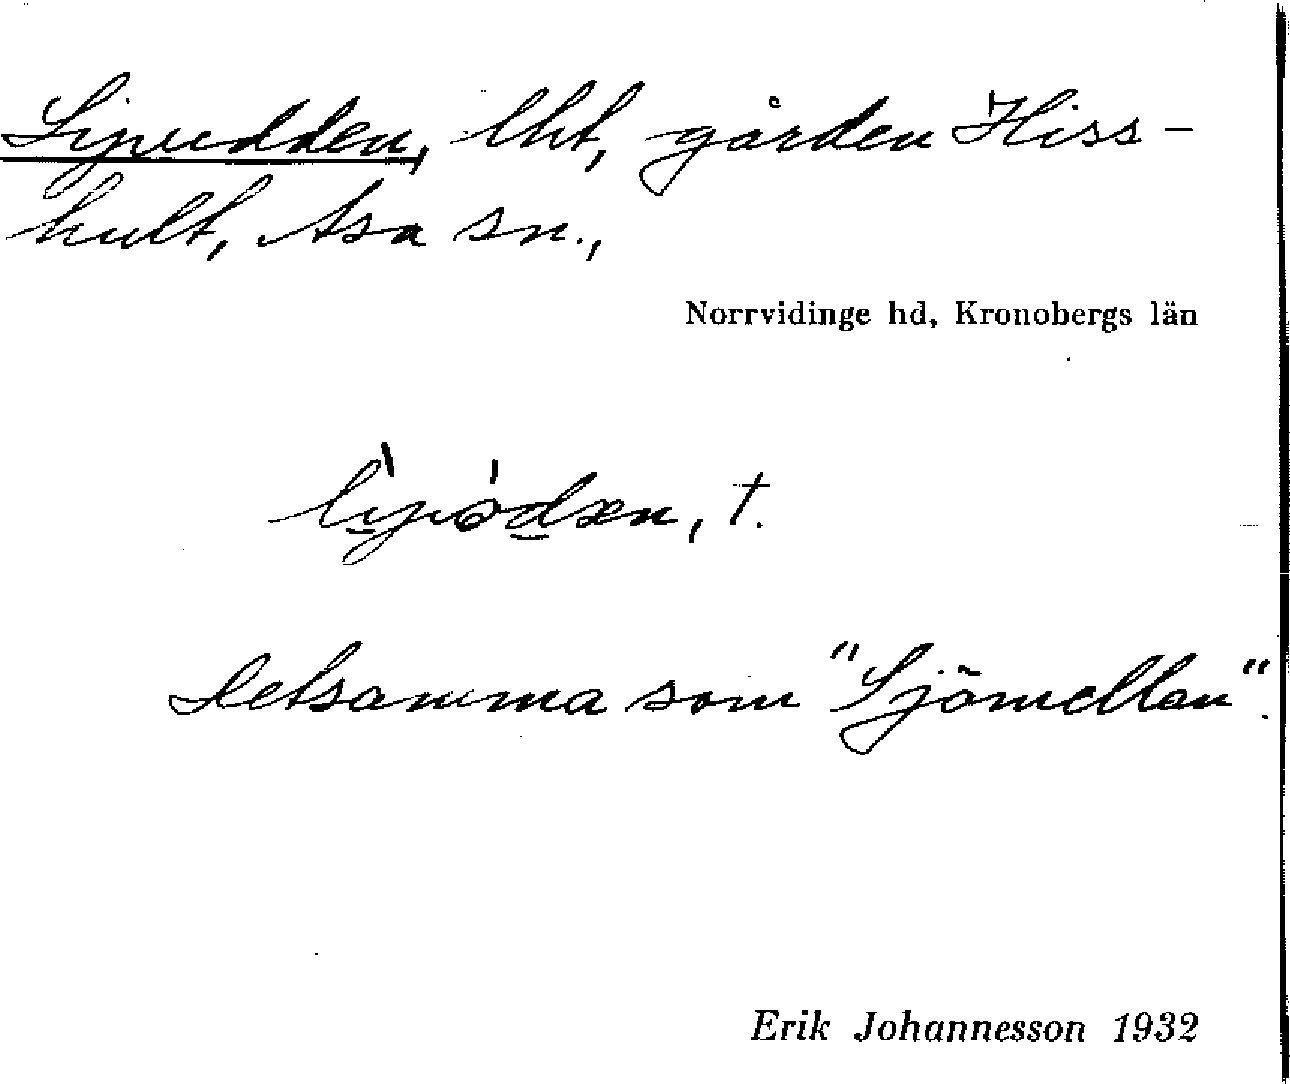 lht, gården Hiss-
hult, Asa sn.,
Norrvidinge hd, Kronobergs län
Detsamma som "Sjömellan".
Erik Johannesson 1932